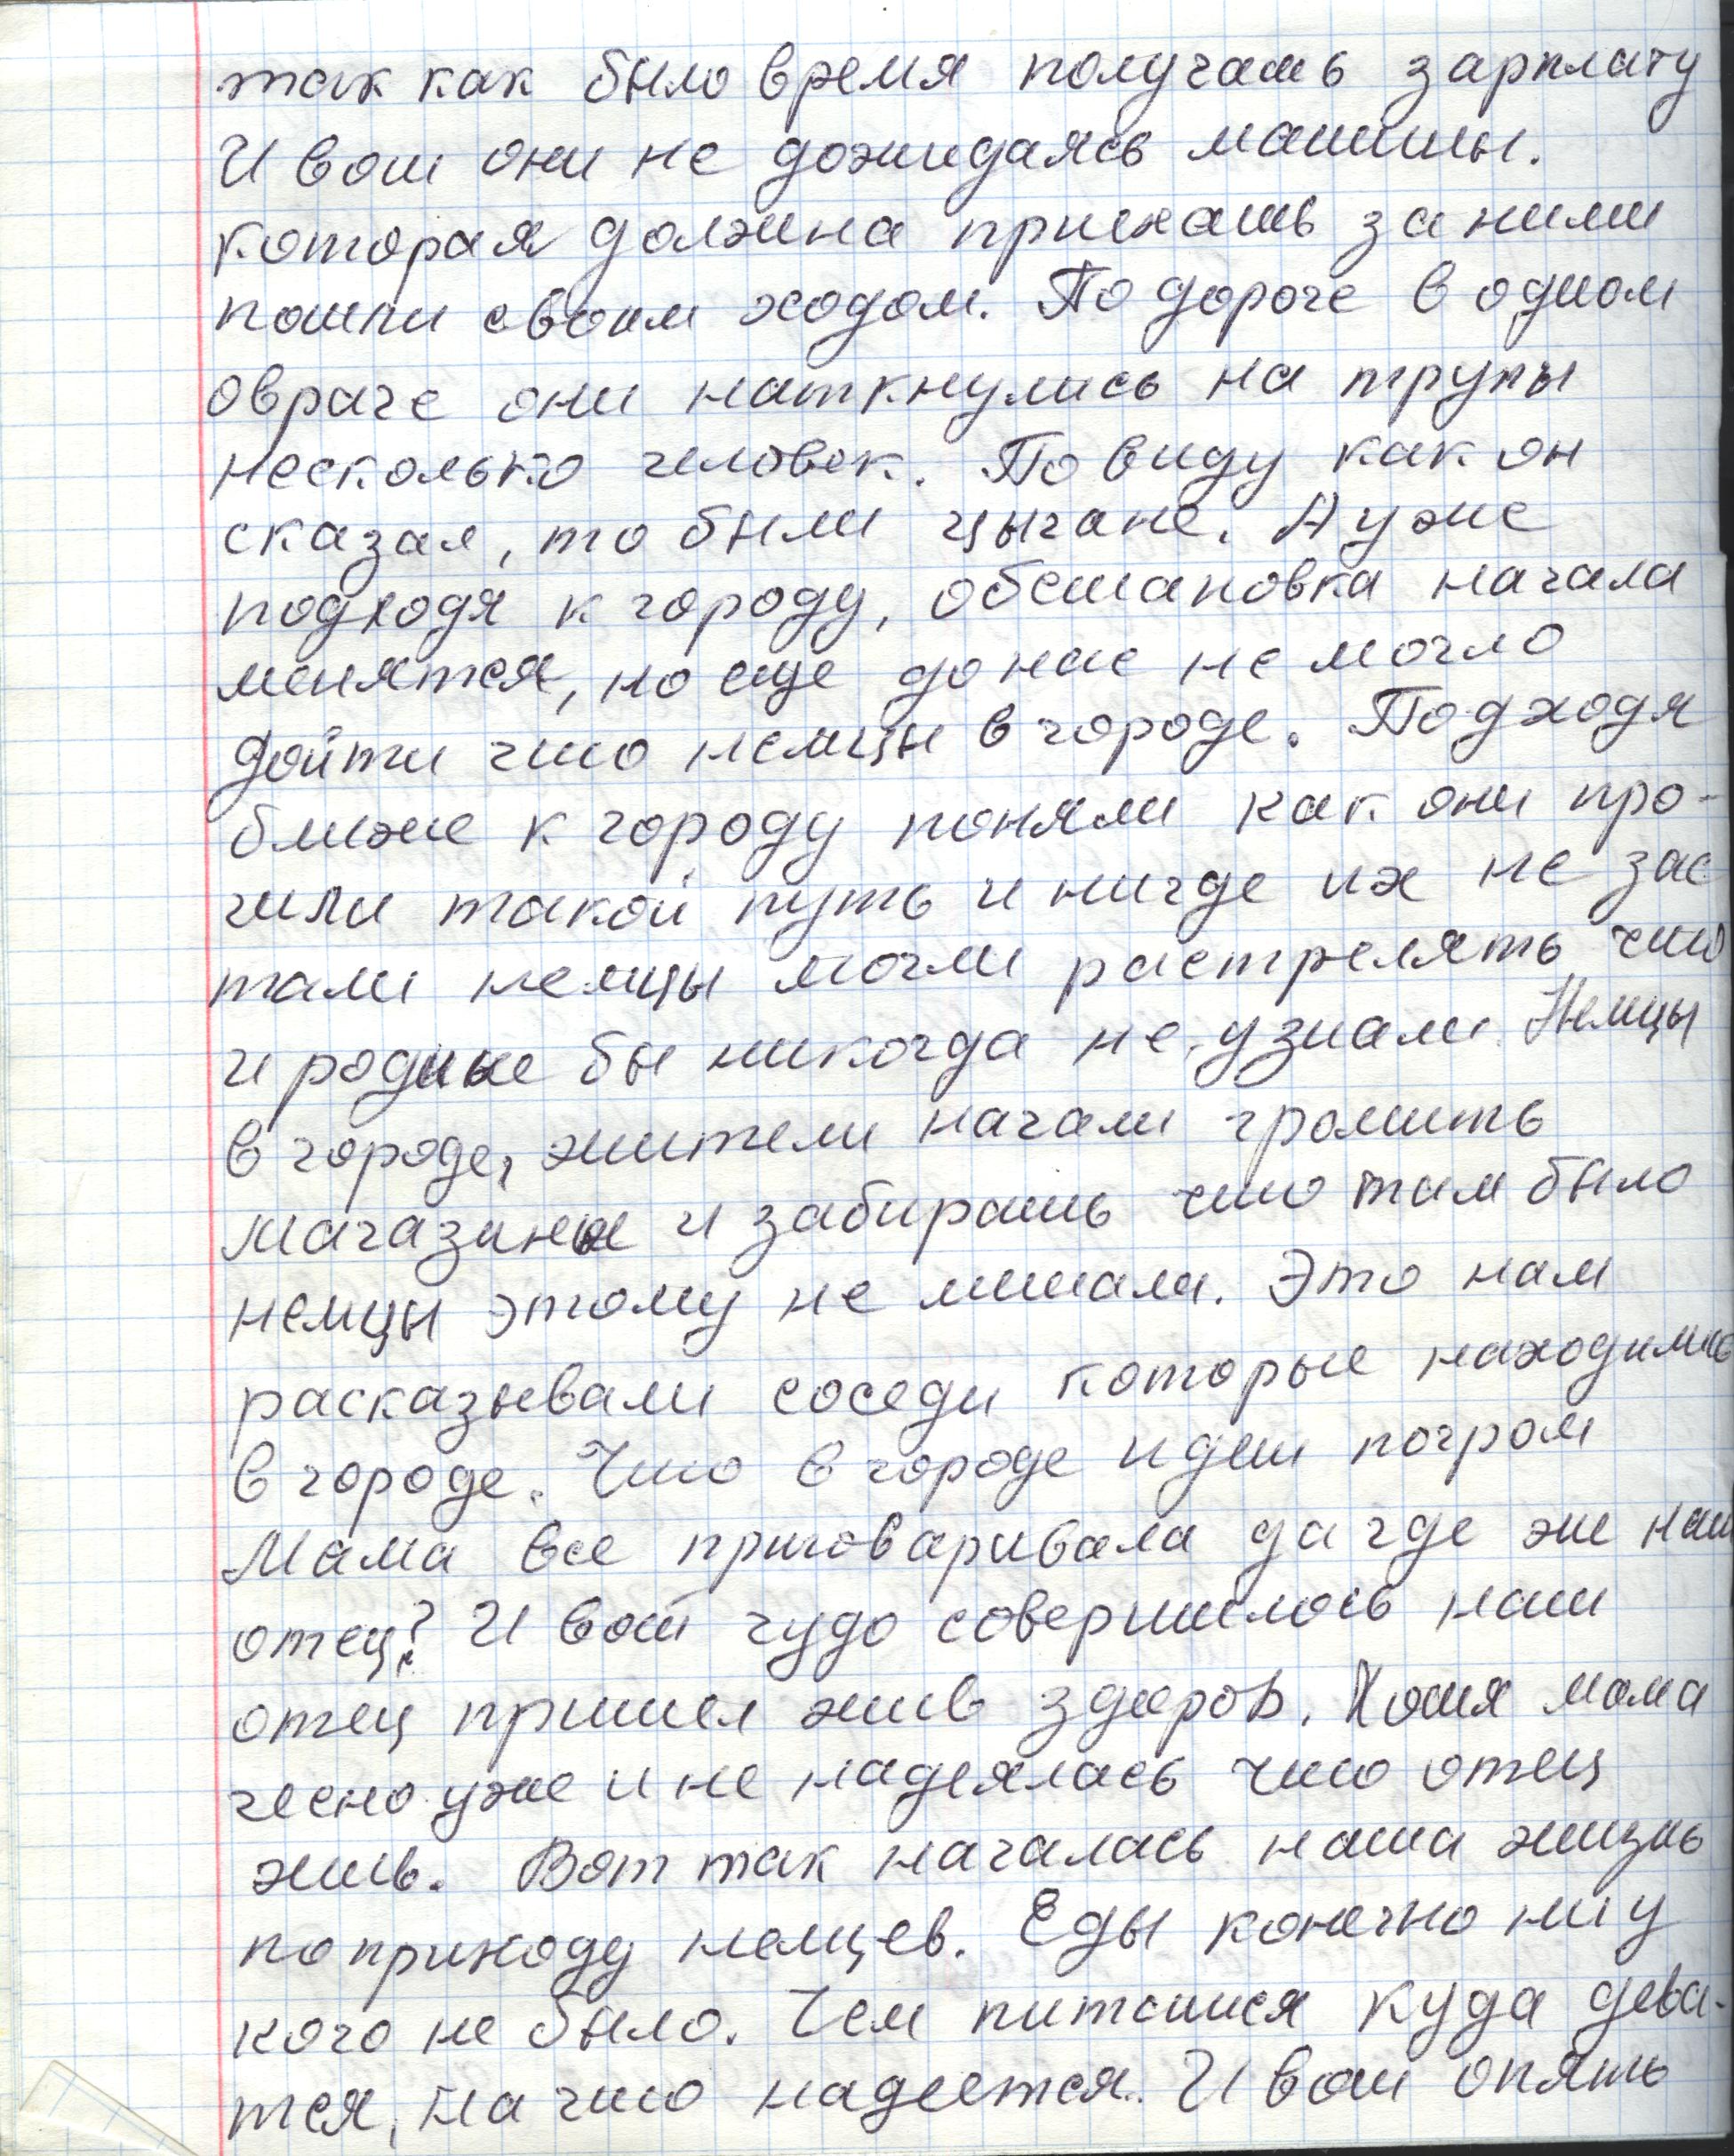 так как было время получать зарплату
И вот они не дожидаясь машины.
которая должна приехать за ними
пошли своим ходом. По дороге в одном
овраге они наткнулись на трупы
несколько человек. По виду как он
сказал, то были цыгане. А уже
подходя к городу, обстановка начала
менятся, но еще до нас не могло
дойти что немцы в городе. Подходя
ближе к городу поняли как они про-
шли такой путь и нигде их не зас
тали немцы могли растрелять что
и родные бы никогда не узнали. Немцы
в городе, жители начали громить
магазины и забирать что там было
немцы этому не мешали. Это нам
расказывали соседи которые находились
в городе. Что в городе идет погром
Мама все приговаривала да где же наш
отец? И вот чудо совершилось наш
отец пришел жив здоров. Хотя мама
чесно уже и не надеялась что отец
жив. Вот так началась наша жизнь
по приходу немцев. Еды конечно ни у
кого не было. Чем питатся куда дева-
тся, на что надеется. И вот опять